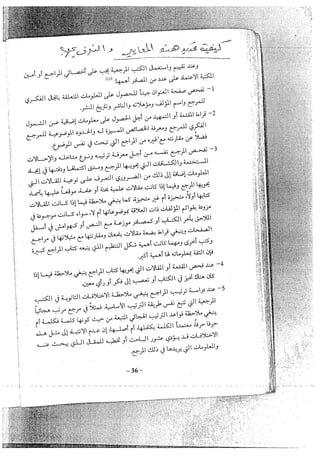 وعند تقييم واستعمال الكتب المرجعية يجب على أخصائي المراجع أو أمين
المكتبة الاعتماد على عدد من المصادر أهمها:
1- تفحص صفحة العنوان جيداً للحصول على المعلومات المتعلقة بالمجال الفكري
للمرجع واسم المؤلف ومؤهلاته والناشر وتاريخ النشر.
2- قراءة المقدمة أو التمهيد من أجل الحصول على معلومات إضافية عن الشمول
الفكري للمرجع ومعرفة الخصائص المميزة له والحدود الموضوعية للمرجع
فضلاً عن مقارنته مع غيره من المراجع التي تبحث في نفس الموضوع.
3- تفحص المرجع نفسه من أجل معرفة ترتيبه ونوع مداخله والإحالات
المستخدمة والكشافات التي يحويها المرجع ومدى اكتمالها ودقتها في إيجاد
المعلومات إضافة إلى ذلك من الضروري التعرف على نوعية المقالات التي
يحويها المرجع وفيما إذا كانت مقالات علمية بحتة أو عامة، موقعاً عليها بأسماء
كتابها أولاً، متحيزة أم غير متحيزة، كما ينبغي ملاحظة فيما إذا كانت المقالات
مزودة بقوائم المؤلفات ذات العلاقة بموضوعاتها أم لا، سواء كانت موجودة في
الملاحق بآخر الكتاب أو كمصادر موزعة مع النص أو كهوامش في أسفل
الصفحات وينبغي قراءة بضعة مقالات بإمعان ومقارنتها مع مثيلاتها في مراجع
وكتب أخرى ومهما كانت أهمية شكل التنظيم الذي يتبعه كتاب المراجع كبيرة
فإن الثقة بمعلوماته لها أهمية أكبر.
4- عند فحص المقدمة أو المقالات التي يحويها كتاب المراجع ينبغي ملاحظة فيما إذا
كان هناك تحيز في الكتاب أو تعصب إلى فكر أو رأي معين.
5- عند دراسة ترتيب المراجع ينبغي ملاحظة الاختلافات الثانوية في الكتب
المرجعية التي تتبع نفس طريقة الترتيب الأساسية فمثلاً في مرجع مرتب هجائياً
ينبغي ملاحظة قواعد الترتيب الهجائي المتبعة من حيث كونها كلمة فكلمة أم
حرفا حرفا معتمداً الكلمة بكاملها أم أصلها، إن عدم الانتباه إلى مثل هذه
الاختلافات قد يؤدي عثور الباحث أو تخطيه للمقال الذي يبحث عنه
والمعلومات التي يريدها في ذلك المرجع.
- 36 -